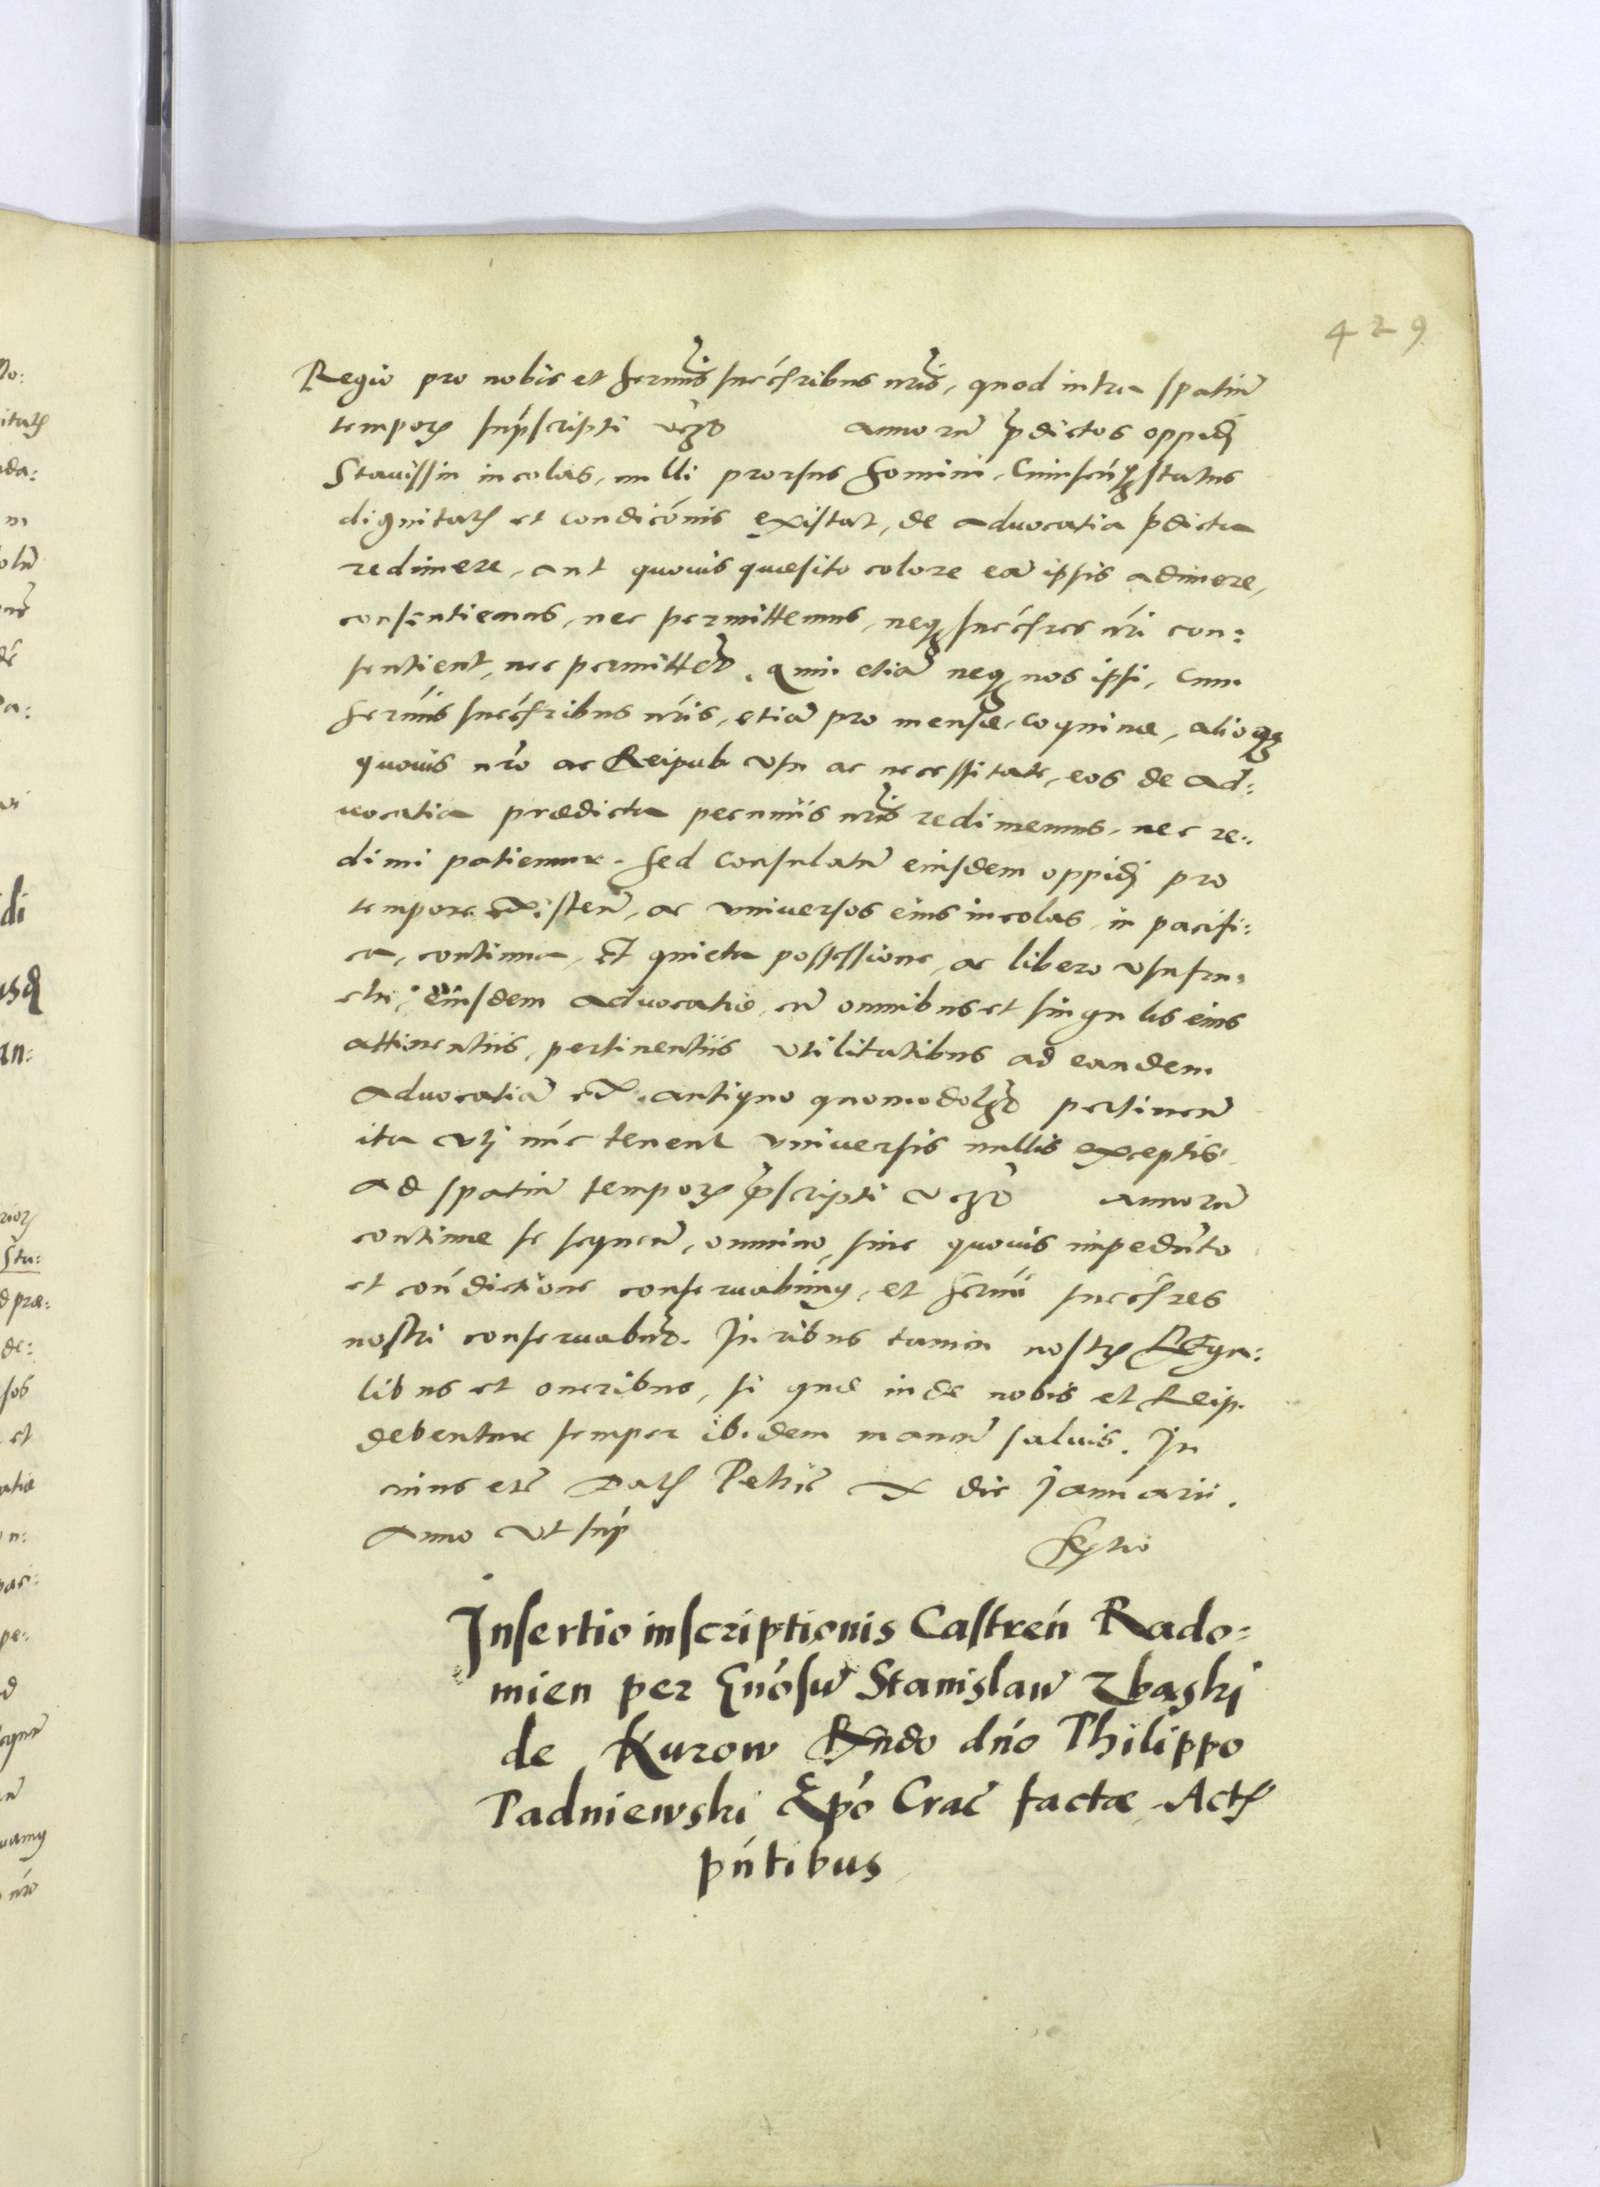 429
Regio pro nobis et sermis succsribus nris, quod intra spatiu
tempor supscripti annoru pdictos oppidi
Stavissin incolas, nulli prorsus homini, cuiuscunq status
dignitatis et condicónis existat, de advocatia pdicta
redimere, aut quovis quæsito colore eã ipsis adimere,
consentiemus, nec permittemus, neq succsres nri con:
sentient, nec permittet. quin etiã neq nos ipsi, cum
sermis succsribus nris, etiã pro mensæ, coquinæ, alioq
quovis nro ac Reipub usu ac necessitate, eos de ad:
vocatia prædicta pecuniis nris redimemus, nec re:
dimi patiemur. sed consulatu eiusdem oppidi pro
tempore existen, ac universos eius incolas, in pacifi:
ca, continua, et quieta possessione, ac libero usufru:
ctu, eiusdem advocatiæ, cu omnibus et singulis eius
attinentiis, pertinentiis utilitatibus ad eandem
advocatiã ex antiquo quomodolzd pertinen
ita uti nuc tenent universis nullis exceptis
ad spatiu tempor pscripti annoru
continue se sequen, omnino, sine quovis impedinto
et condictione conservabimus, et sermi succsres
nostri conservabut. Iuribus tamen nostris Rega:
libus et oneribus, si quæ inde nobis et Reip.
debentur semper ibidem manen salvis. In
cuius etc Dat Petric X die Januarii.
Anno ut sup
Insertio inscriptionis Castren Rado:
mien per Gnosu Stanislau Zbaski
de Kurow Rndo dno Philippo
Padniewski Epo Crac factæ Actis
pntibus